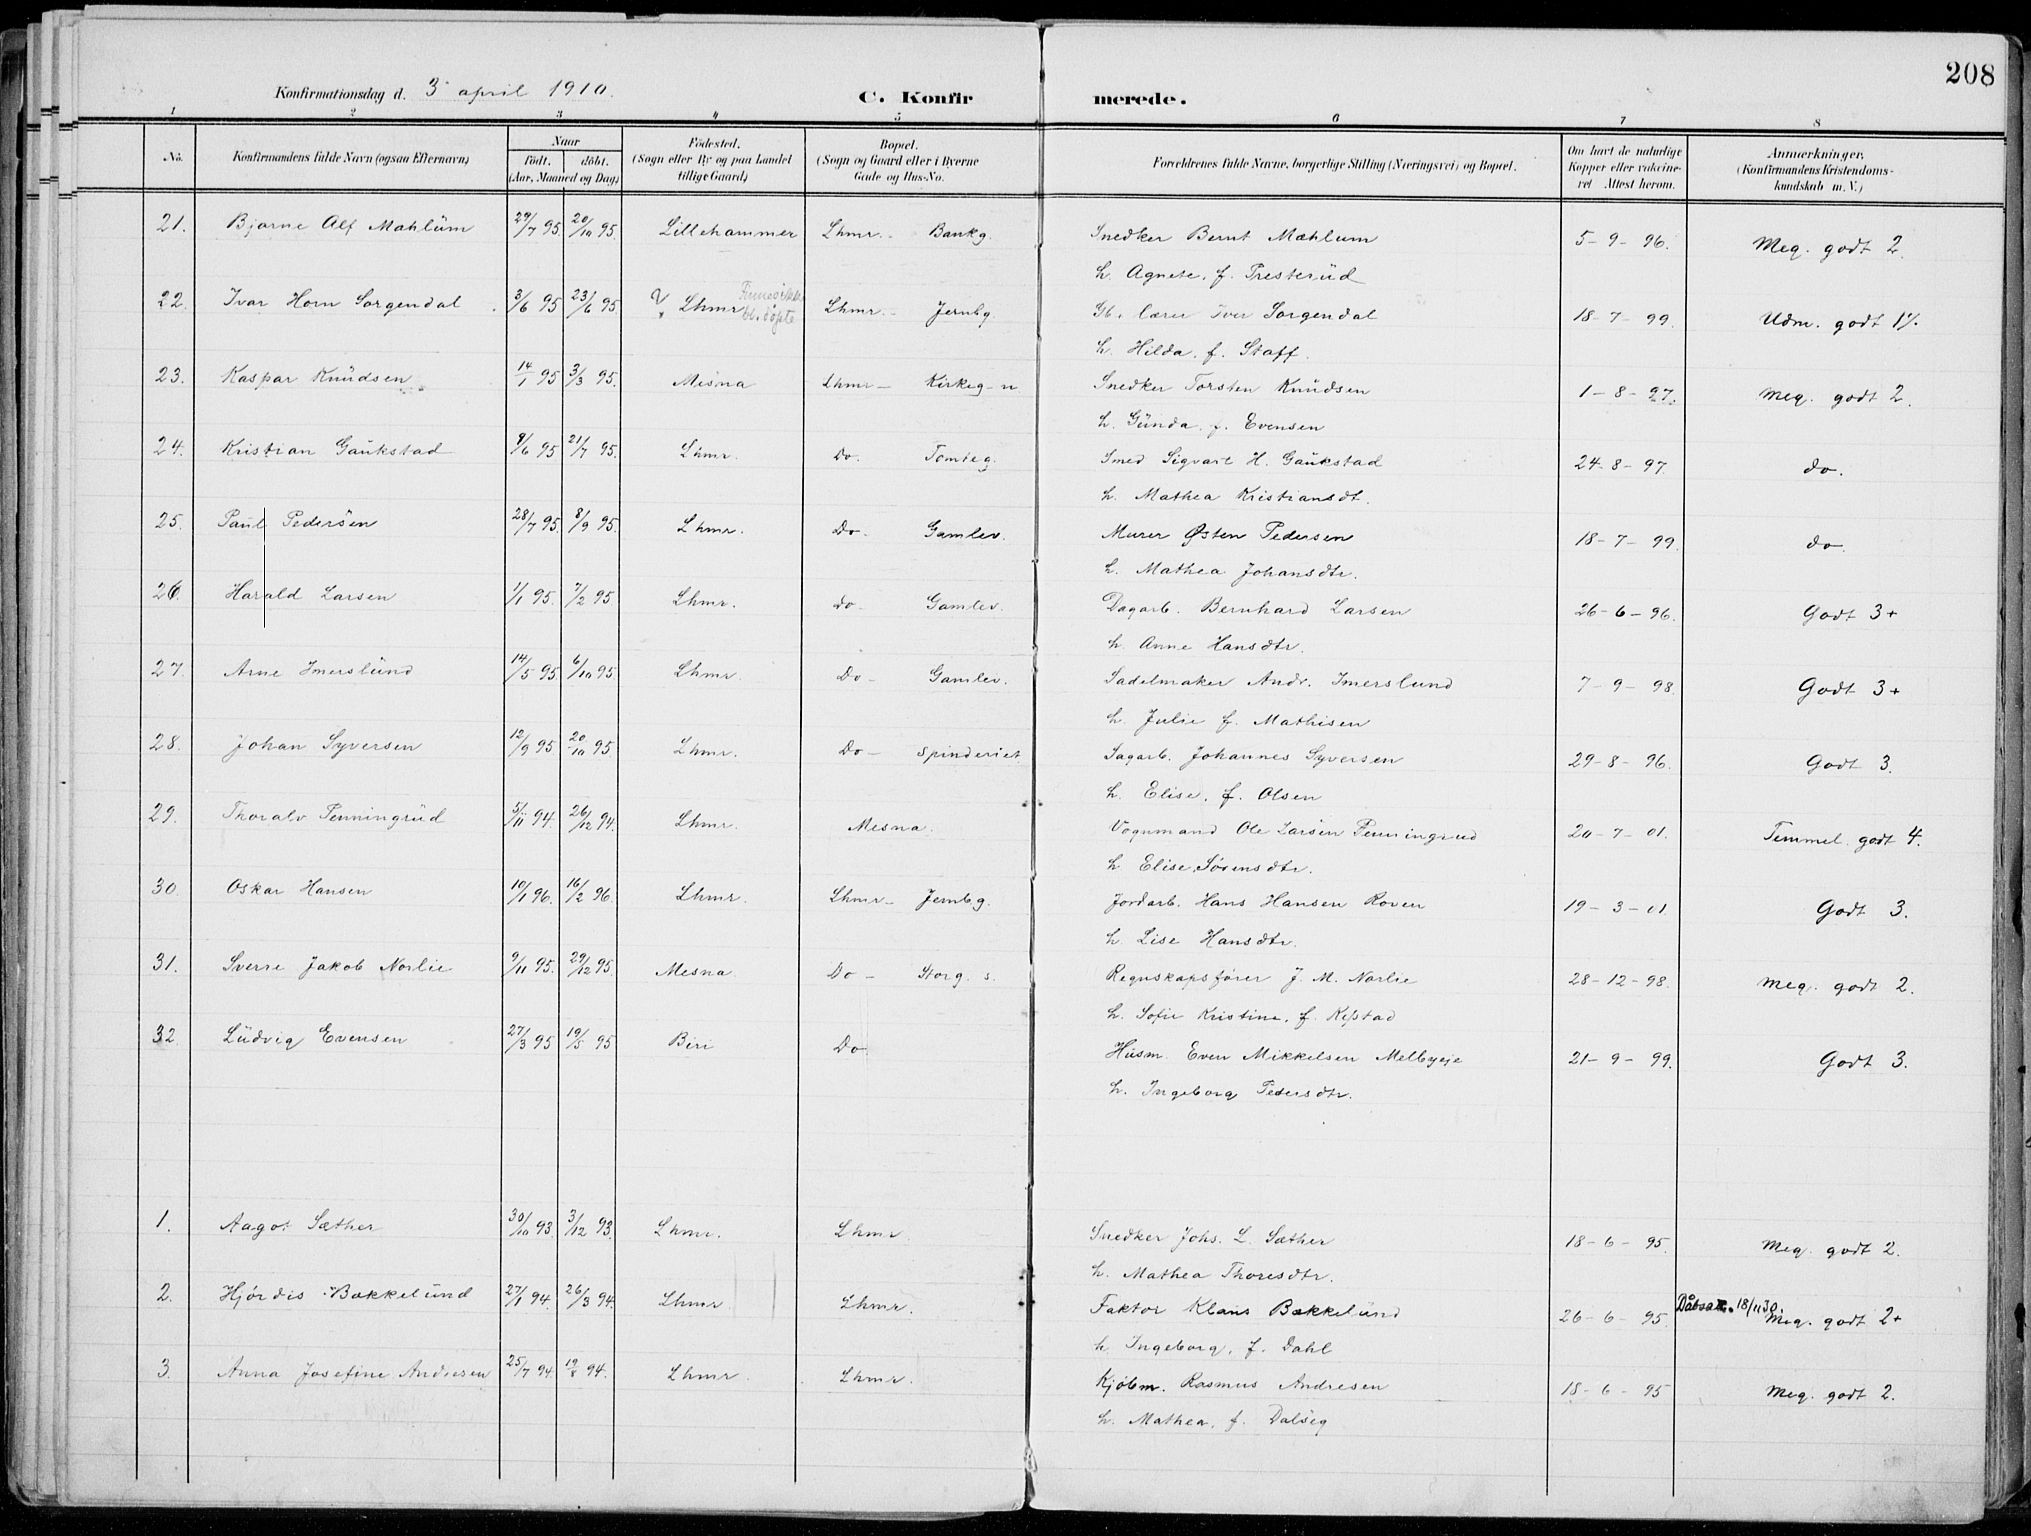 208
Konfirmationsdag d. 3 april 1910.
C. Konfirmerede.
1 2 3 4 5 6 7 8
No. Konfirmandens fulde Navn (ogsaa Efternavn) Naar født. døbt. (Aar, Maaned og Dag) Fødested. (Sogn eller By og paa Landet tillige Gaard) Bopæl. (Sogn og Gaard eller i Byerne Gade og Hus-No. Forældrenes fulde Navne, borgerlige Stilling (Næringsvei) og Bopæl. Om havt de naturlige Kopper eller vakcineret Attest herom. Anmærkninger. (Konfirmandens Kristendomskundskab m. V.)
21. Bjarne Alf Mæhlum 29/7 95. 20/10 95. Lillehammer Lhmr. - Bankg. Snedker Bernt Mæhlum 5-9-96. Meg. godt 2.
h. Agnete, f. Presterud
22. Ivar Horn Sorgendal 3/6 95 23/6 95. Lhmr Lhmr. - Jernbg. Ivar Sorgendal 18-7-99. Udm. godt
h. Hilda, f. Staff.
23. Kaspar Knudsen 14/1 95 3/3 95. Mesna Lhmr - Kirkeg - n. Snedker Torsten Knudsen 1-8-97. Meg. godt 2.
h. Gunda, f. Evensen
24. Kristian Gaukstad 9/6 95 21/7 95. Lhmr. Do. Tomteg. Smed Sigvart H. Gaukstad 24-8-97. do.
h. Mathea Kristiansdt.
25. Paul Pedersen 28/7 95. 8/9 95. Lhmr. Do- Gamlev. Murer Østen Pedersen 18-7-99. do.
h. Mathea Johansdtr.
26. Harald Larsen 1/1 95. 7/2 95. Lhmr. do- Gamlev. Dagarb. Bernhard Larsen 26-6-96. Godt 3+
h. Anne Hansdtr.
27. Arne Imerslund 14/5 95. 6/10 95. Lhmr. Do - Gamlev. Sadelmaker Andr. Imerslund 7-9-98. Godt 3+
h. Julie f. Mathisen
28. Johan Syversen 12/9 95 20/10 95 Lhmr. Do - Spinderiet Sagarb. Johannes Syversen 29-8-96. Godt 3.
h. Elise, f. Olsen
29. Thoralv Penningrud 5/11 94. 26/12 94. Lhmr. Mesna. Vognmand Ole Larsen Penningrud 20-7-01. Temmel. godt 4.
h. Elise Sørensdtr.
30. Oskar Hansen 10/1 96. 16/2 96. Lhmr. Lhmr - Jernbg. Jordarb. Hans Hansen Roven 19-3-01. Godt 3.
h. Lise Hansdtr.
31. Sverre Jakob Norlie 9/11 95. 29/12 95. Mesna Do - Storg. s. Regnskapsfører J. M. Norlie 28-12-98. Meg. godt 2.
h. Sofie Kristine, f.
32. Ludvig Evensen 27/3 95 19/5 95 Biri Do Husm. Even Mikkelsen Melbyeje 21-9-99. Godt 3.
h. Ingeborg Pedersdtr.
1. Aagot Sæther 30/10 93. 3/12 93. Lhmr. Lhmr. Snedker Johs. L. Sæther 18-6-95. Meg. godt 2.
h. Mathea Thoresdtr.
2. Hjørdis Bakkelund 27/1 94. 26/3 94. Lhmr. Lhmr. Faktor Klaus Bakkelund 26-6-95. Dåbsat. 18/11 30. Meg. godt 2+
h. Ingeborg, f. Dahl
3. Anna Josefine Andresen 25/7 94. 19/8 94. Lhmr. Lhmr. Kjøbm. Rasmus Andresen 18-6-95 Meg. godt 2.
h. Mathea, f. Dalseg